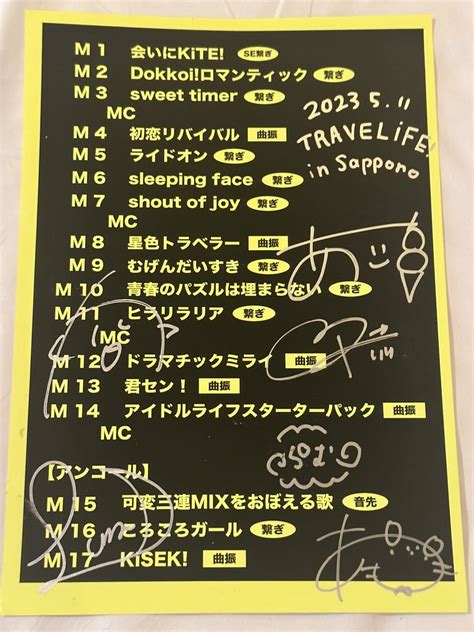 M 1 会いにKiTE! SE繋ぎ
M 2 Dokkoi!ロマンティック 繋ぎ
M 3 sweet timer 繋ぎ
MC
M 4 初恋リバイバル 曲振
M 5 ライドオン 繋ぎ
M 6 sleeping face 繋ぎ
M 7 shout of joy 繋ぎ
MC
M 8 星色トラベラー 曲振
M 9 むげんだいすき 繋ぎ
M 10 青春のパズルは埋まらない 繋ぎ
M 11 ヒラリラリア 繋ぎ
MC
M 12 ドラマチックミライ 曲振
M 13 君セン! 曲振
M 14 アイドルライフスターターパック 曲振
MC
【アンコール】
M 15 可変三連MIXをおぼえる歌 音先
M 16 ころころガール 繋ぎ
M 17 KiSEK! 曲振
2023 5. 11
TRAVELiFE!
in Sapporo